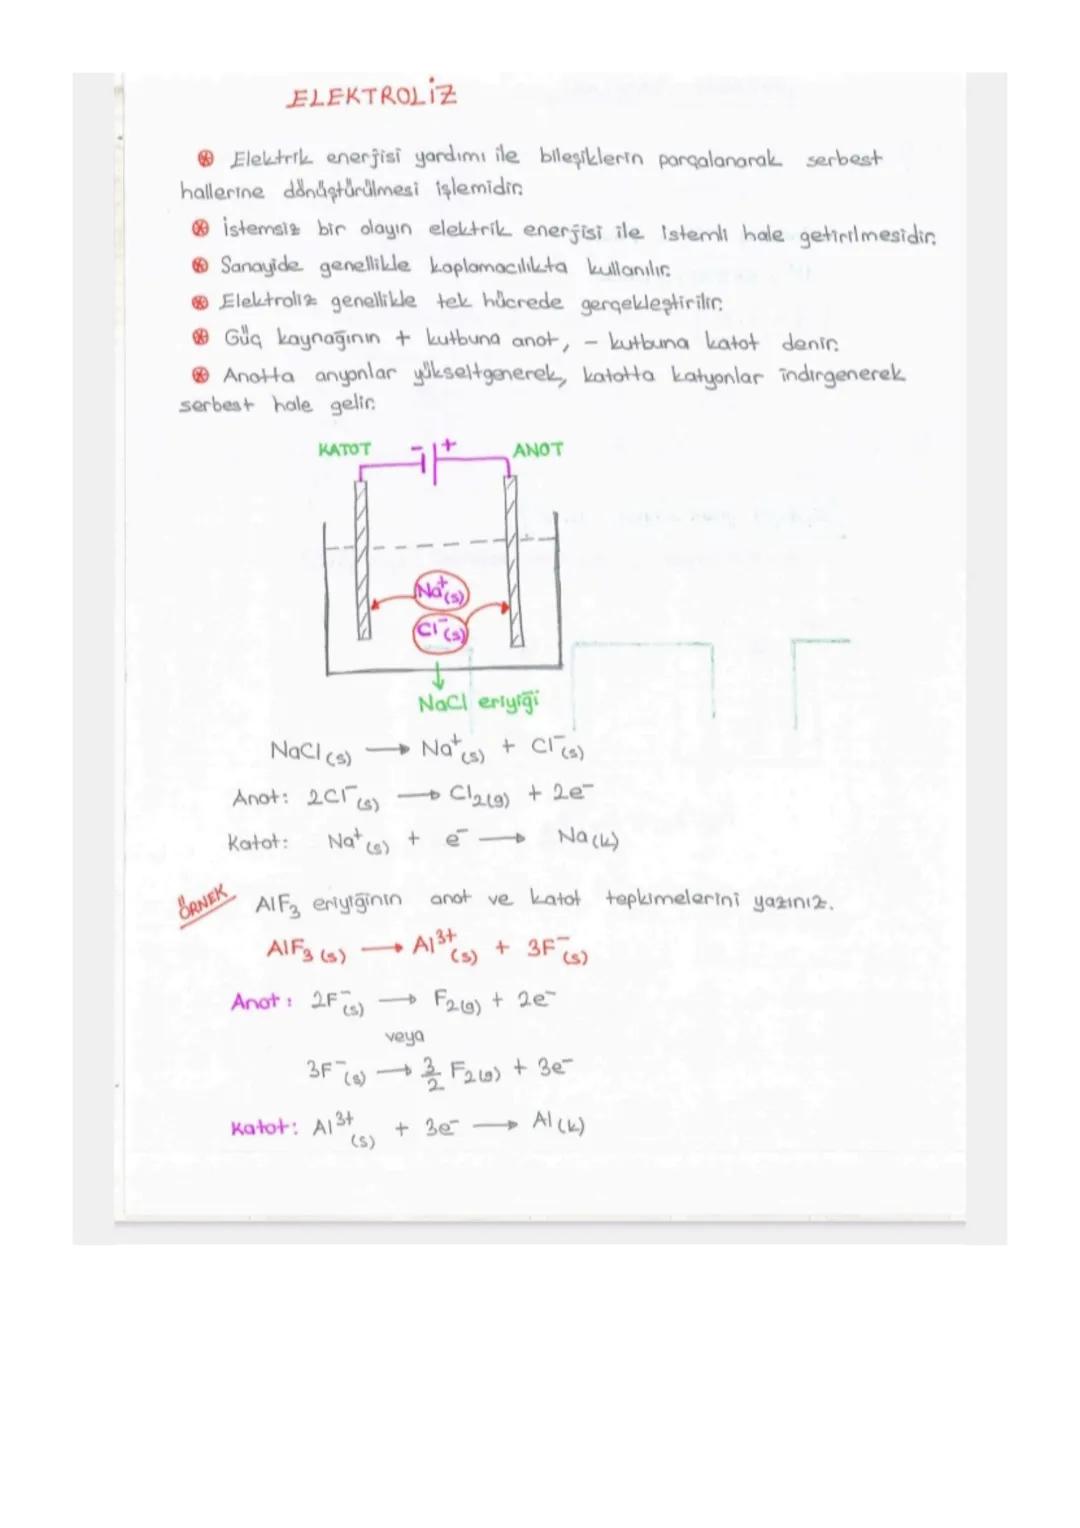 ELEKTROLİZ
Elektrik enerjisi yardımı ile bileşiklerin parçalanarak serbest
hallerine dönüştürülmesi işlemidir.
İstemsiz bir olayın elektrik enerjisi ile istemli hale getirilmesidir.
Sanayide genellikle kaplamacılıkta kullanılır.
Elektroliz genellikle tek hücrede gerçekleştirilir.
Güç kaynağının + kutbuna anot, - kutbuna katot denir.
Anotta anyonlar yükseltgenerek, katotta katyonlar indirgenerek
serbest hale gelir.
KATOT - + ANOT
Na⁺(s)
Cl⁻(s)
NaCl eriyiği
NaCl(s) → Na⁺(s) + Cl⁻(s)
Anot: 2Cl⁻(s) → Cl₂(g) + 2e⁻
Katot: Na⁺(s) + e⁻ → Na(k)
ÖRNEK AlF₃ eriyiğinin anot ve katot tepkimelerini yazınız.
AlF₃(s) → Al³⁺(s) + 3F⁻(s)
Anot: 2F⁻(s) → F₂(g) + 2e⁻
veya
3F⁻(s) → 3/2 F₂(g) + 3e⁻
Katot: Al³⁺(s) + 3e⁻ → Al(k)